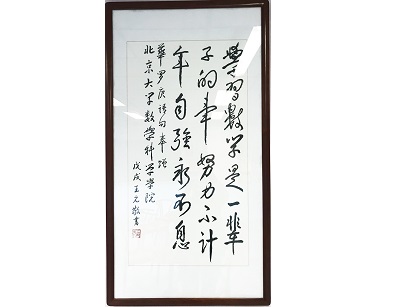 學習數学是一輩
子的事努力不计
年自強永不息
華罗庚语句奉赠
北京大学数学科学学院
戊戌王元敬書